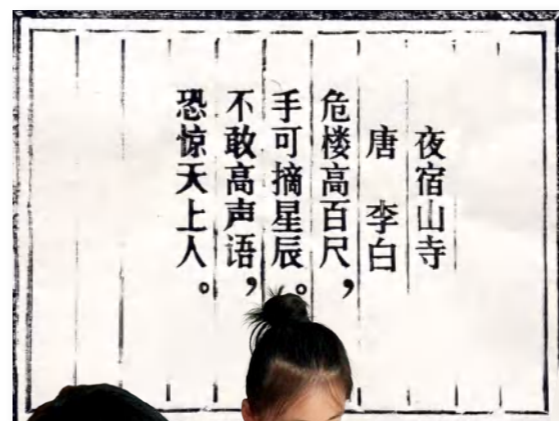 夜宿山寺
唐 李白
危楼高百尺，
手可摘星辰。
不敢高声语，
恐惊天上人。